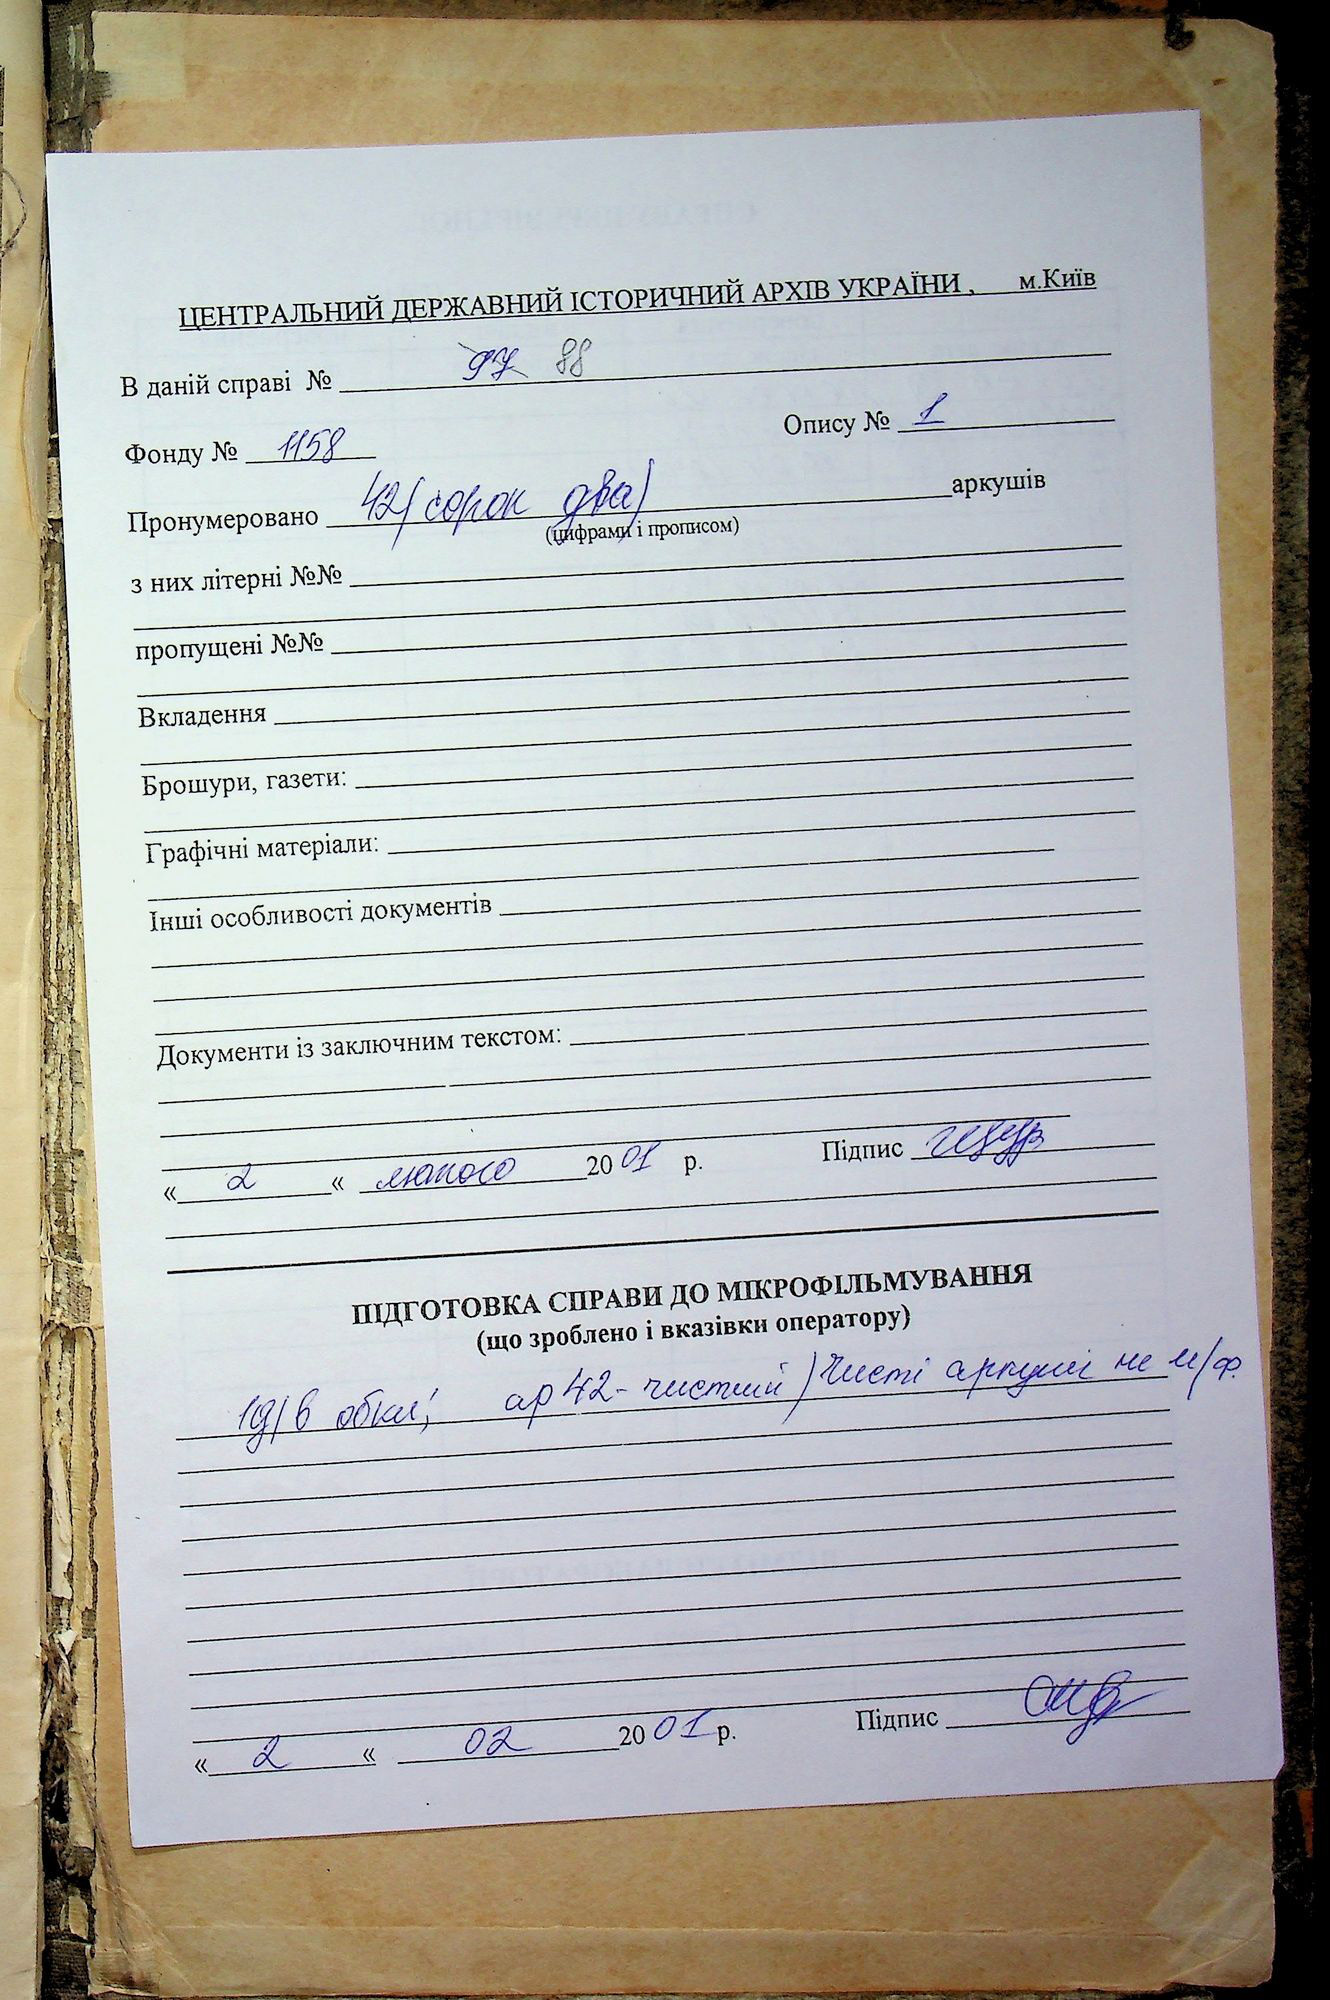 ЦЕНТРАЛЬНИЙ ДЕРЖАВНИЙ ІСТОРИЧНИЙ АРХІВ УКРАЇНИ , м.Київ
В даній справі № 97 88
Фонду № 1158 Опису № 1
Пронумеровано 42/сорок два/ аркушів
(цифрами і прописом)
з них літерні №№
пропущені №№
Вкладення
Брошури, газети:
Графічні матеріали:
Інші особливості документів
Документи із заключним текстом:
« 2 « лютого 2001 р. Підпис
ПІДГОТОВКА СПРАВИ ДО МІКРОФІЛЬМУВАННЯ
(що зроблено і вказівки оператору)
в обкл; ар 42- чистий / Чисті аркуші не м/ф.
« 2 « 02 2001 р. Підпис